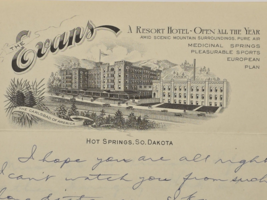 THE Evans
A RESORT HOTEL - OPEN ALL THE YEAR
AMID SCENIC MOUNTAIN SURROUNDINGS, PURE AIR
MEDICINAL SPRINGS
PLEASURABLE SPORTS
EUROPEAN
PLAN
HOT SPRINGS, SO. DAKOTA
I hope you are all right
I can't watch you from such